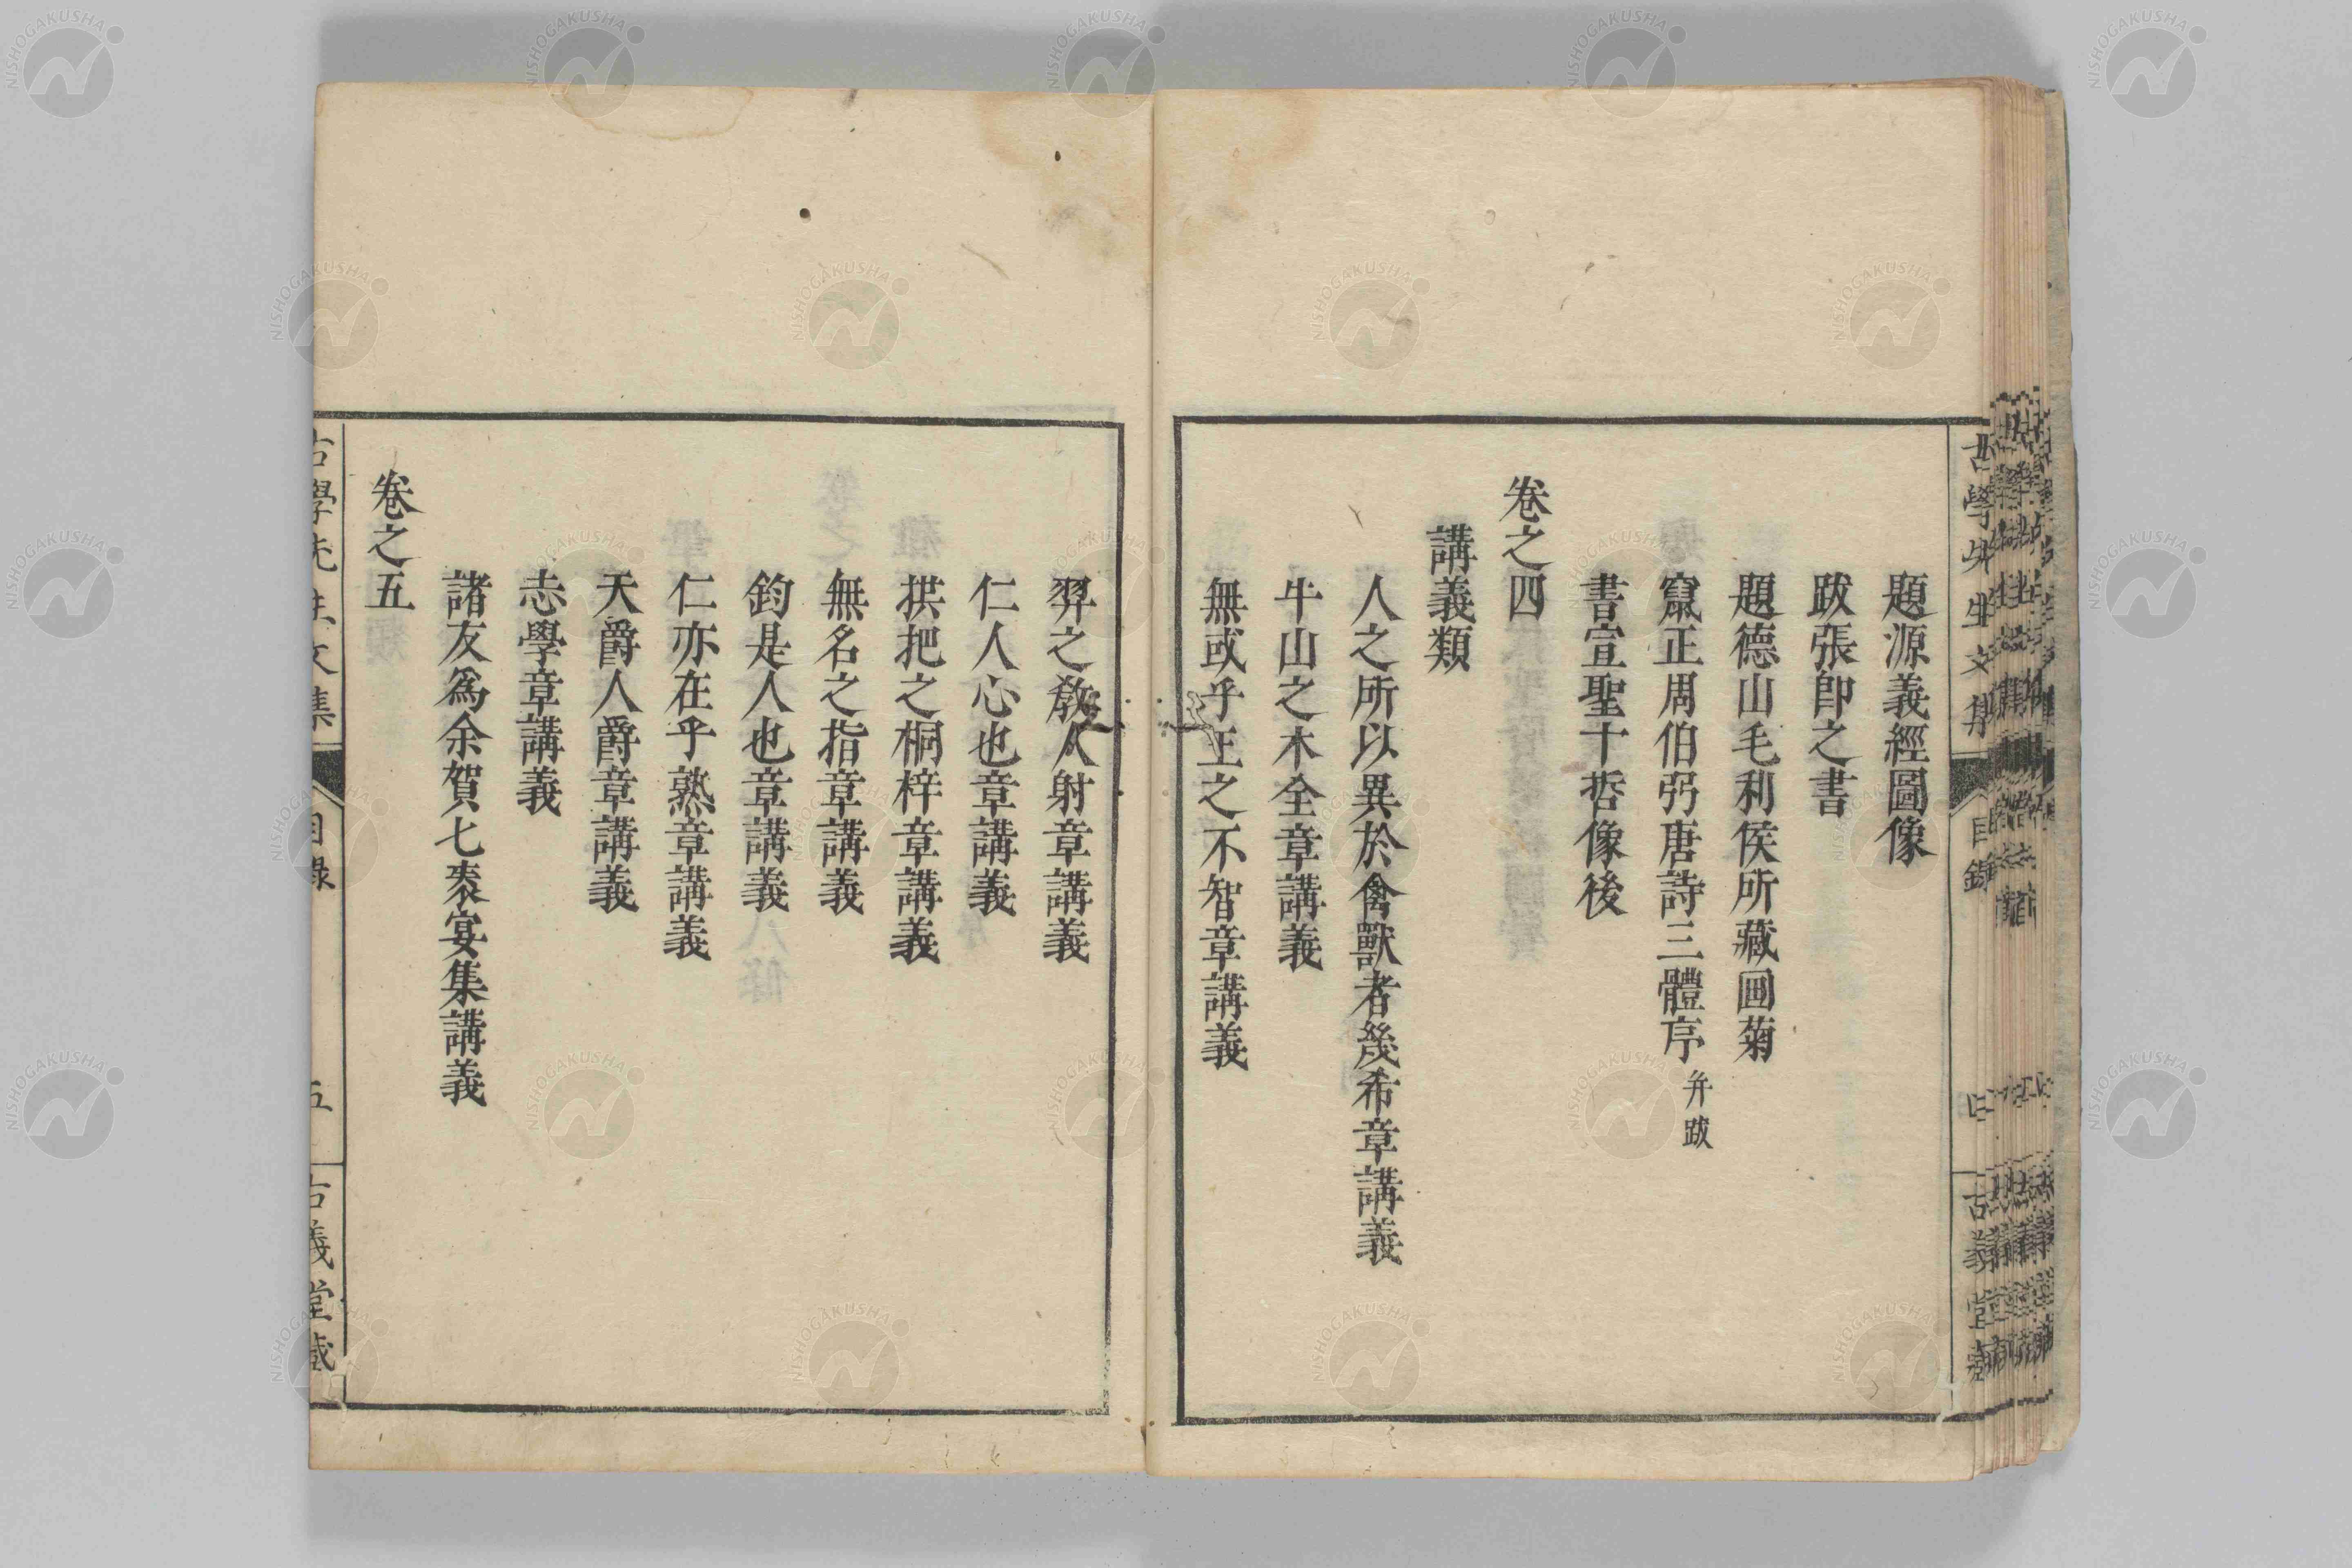 題源義經圖像
跋張卽之書
題德山毛利侯所藏画菊
竄正周伯弜唐詩三體序 弁跋
書宣聖十哲像後
卷之四
講義類
人之所以異於禽獸者幾希章講義
牛山之木全章講義
無或乎王之不智章講義
古學先生文集
目錄
四
古義堂藏
羿之敎人射章講義
仁人心也章講義
拱把之桐梓章講義
無名之指章講義
鈞是人也章講義
仁亦在乎熟章講義
天爵人爵章講義
志學章講義
諸友爲余賀七袠宴集講義
卷之五
古學先生文集
目錄
五
古義堂藏
NISHOGAKUSHA